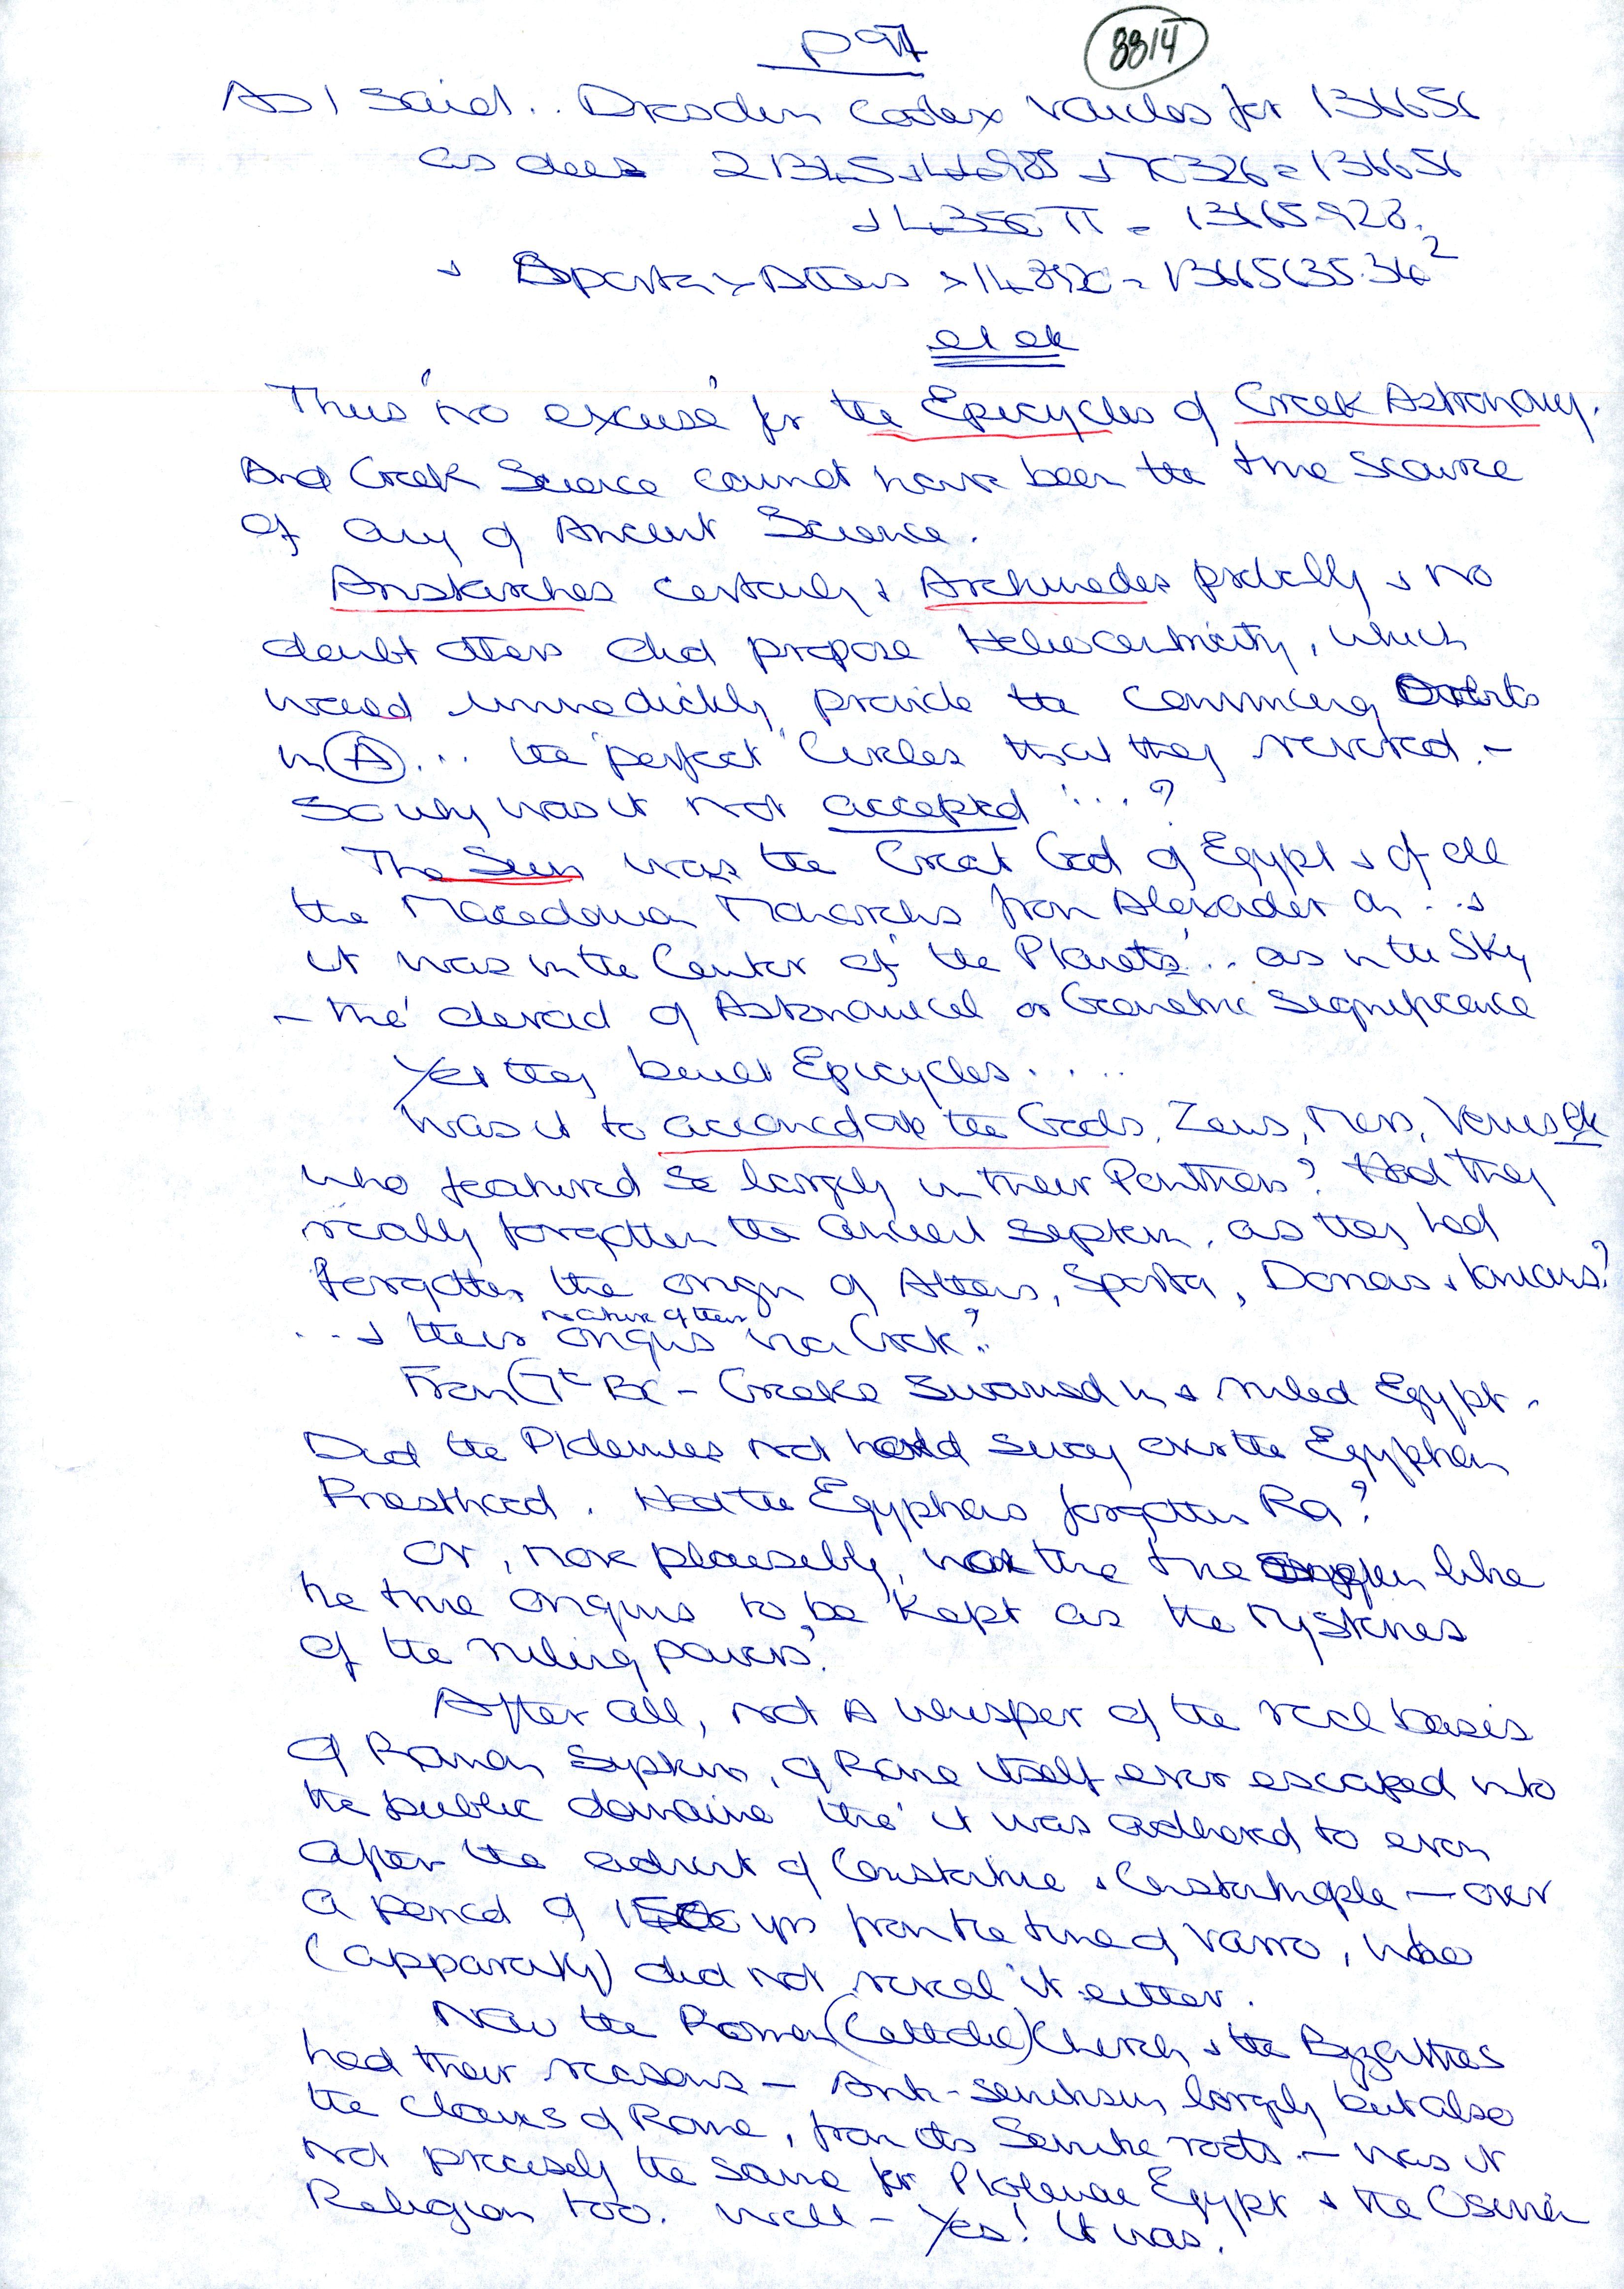 p 97
8814
As I said.. Dresden Codex vouches for 136656
as does
= 136656
π = 13665.928.
et al
Thus 'no excuse' for the Epicycles of Greek Astronomy.
And Greek Science cannot have been the true source
of any of Ancient Science.
Aristarchos certainly & Archimedes probably & no
doubt others did propose Heliocentricity, which
would immediately provide the convincing Orbits
in (A)... the "perfect" Circles that they revered. -
So why was it not accepted ...?
The Sun was the Great God of Egypt & of all
the Macedonian Monarchs from Alexander on .. &
it was in the Center of 'the Planets'... as in the Sky
- tho' devoid of Astronomical or Geometric Significance
Yet they Epicycles.....
Was it to accomodate the Gods, Zeus, Mars, Venus etc
who featured so largely in their Pantheons? Had they
really forgotten the ancient system, as they had
forgotten the origin of Athens, Sparta, Dorians & Ionians?
... & their nature of their origins in a
From 7th BC - Greeks swarmed in & ruled Egypt.
Did the Ptolemies not hold sway over the Egyptian
Priesthood. Had the Egyptians forgotten Ra?
Or, more plausibly, the true like
the true origins to be kept as the Mysteries
of the ruling powers?
After all, not a whisper of the real basis
of Roman System, of Rome itself ever escaped into
the public domaine tho' it was adhered to even
after the advent of Constantine & Constantinople — over
a period of yrs from the time of Varro, who
(apparently) did not reveal it either.
Now the Roman (Catholic) Church & the Byzantines
had their reasons — Anti-semitism largely but also
the claims of Rome, from its Semitic roots. — was it
not precisely the same for Ptolemaic Egypt & the Osirian
Religion too. Well - Yes! It was!